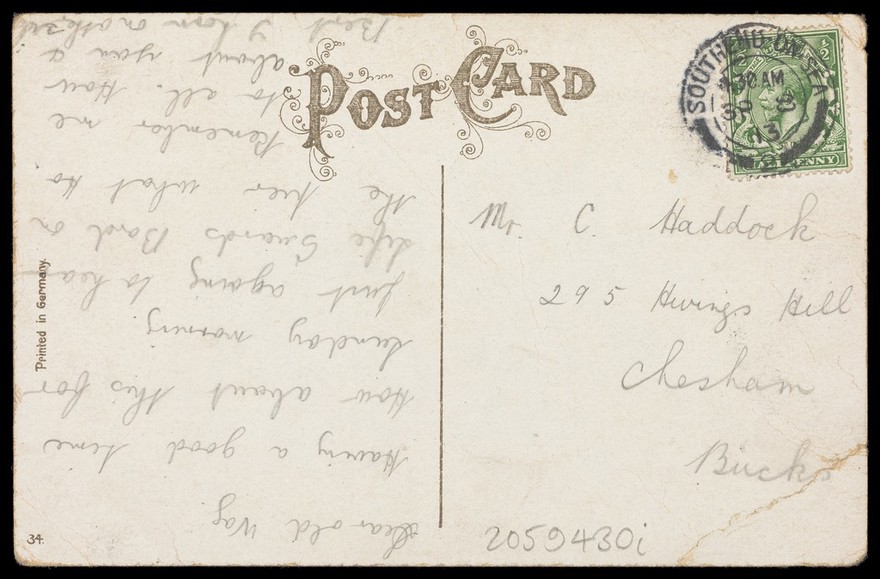 POST CARD
SOUTHEND-ON-SEA
30 AM
SP 8
13
HALFPENNY
Mr. C. Haddock
295 Hivings Hill
Chesham
Bucks
Printed in Germany.
34.
2059430i
Dear old Wag
Having a good time
How about this for
Sunday morning
Just agoing to hear
Life Guards Band on
the Pier what ho
Remember me
to all. How
about you &
Bert